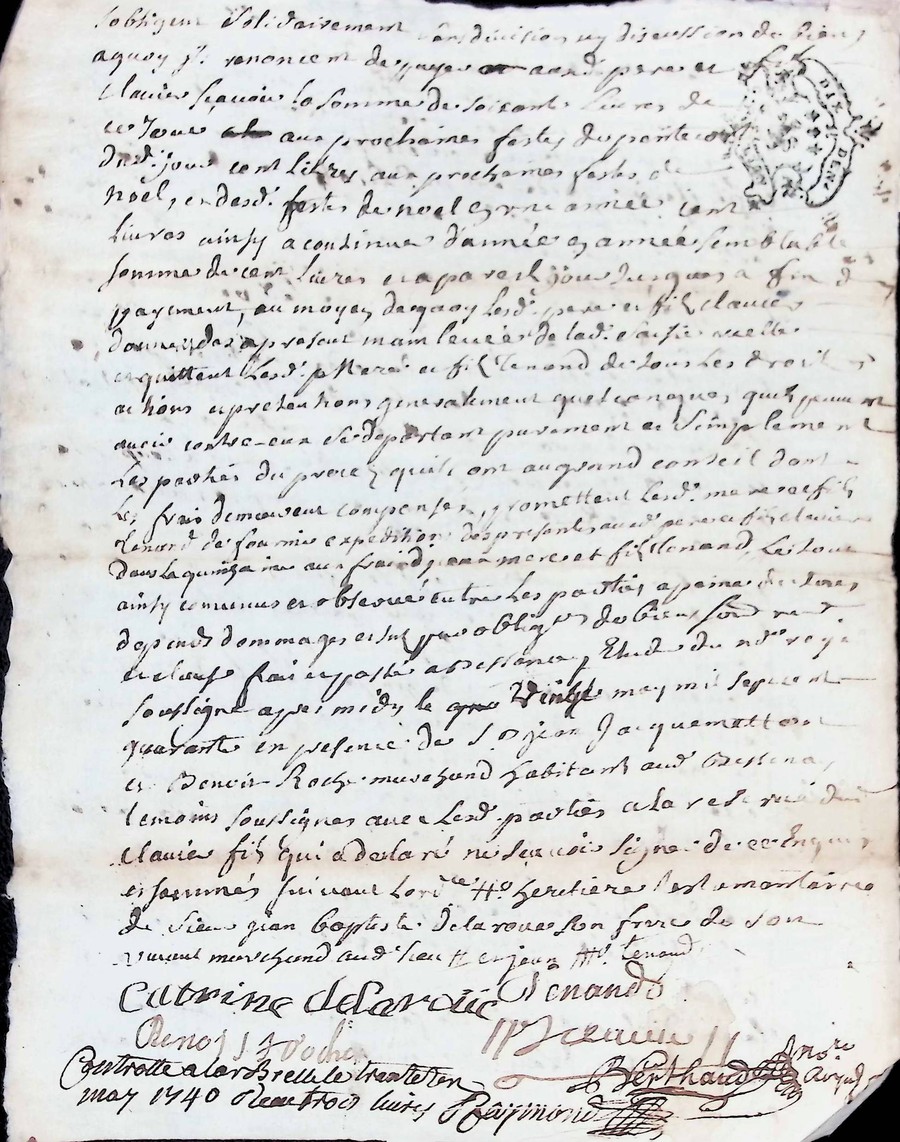 sobligent solidairement sans division ny discussion de biens
aquoy jl. renoncent de payer auxd. pere et fils
Clavier scavoir la somme de soixante livres de
ce jour aux prochaines festes de pentecoste
dud. jour cent livres aux prochaines festes de
noel, et desd. festes de noel en une année cent
livres ainsy a continuer d'année en année semblable
somme de cent livres et a pareil jour jusques a fin de
payement, au moyen dequoy lesd. pere et fils Clavier
donnent des apresent mainlevée de lad. saisie reelle
et quittent lesd. mere et fils Tenand de tous les droits
actions et pretentions generalement quelconques quils peuvent
avoir contre eux se departant purement et simplement
les parties du procez quils ont au grand conseil dont
les frais demeurent compensés, promettent lesd. mere et fils
Tenand de fournir expedition des presentes auxd. pere et fils Clavier
dans la quinzaine aux frais desd. mere et fils Tenand, le tout
ainsy convenus et observé entre les parties a peine de tous
depends dommages et obligons de biens
et clause fait et passé a Dessenas Etude du nore royal
soussigné apres midy le vingt may mil sept cent
quarante en presence de Sr. jean Jacquemetton
et Benoit Roche marchand habitant aud. Dessenas
temoins soussignés avec lesd. parties a la reserve dud.
Clavier fils qui a declaré ne scavoir signer de ce Enquis
et sommés suivant lordce # heritiere testamentaire
de sieur jean baptiste delaroue son frere de son
vivant marchand aud. lieu # et jean # Tenand
Catrine delaroüe Tenand
Benoit Roche Clavier
Controllé a le trente un
may 1740 Reçu trois livres Raymond
Berthaud nore